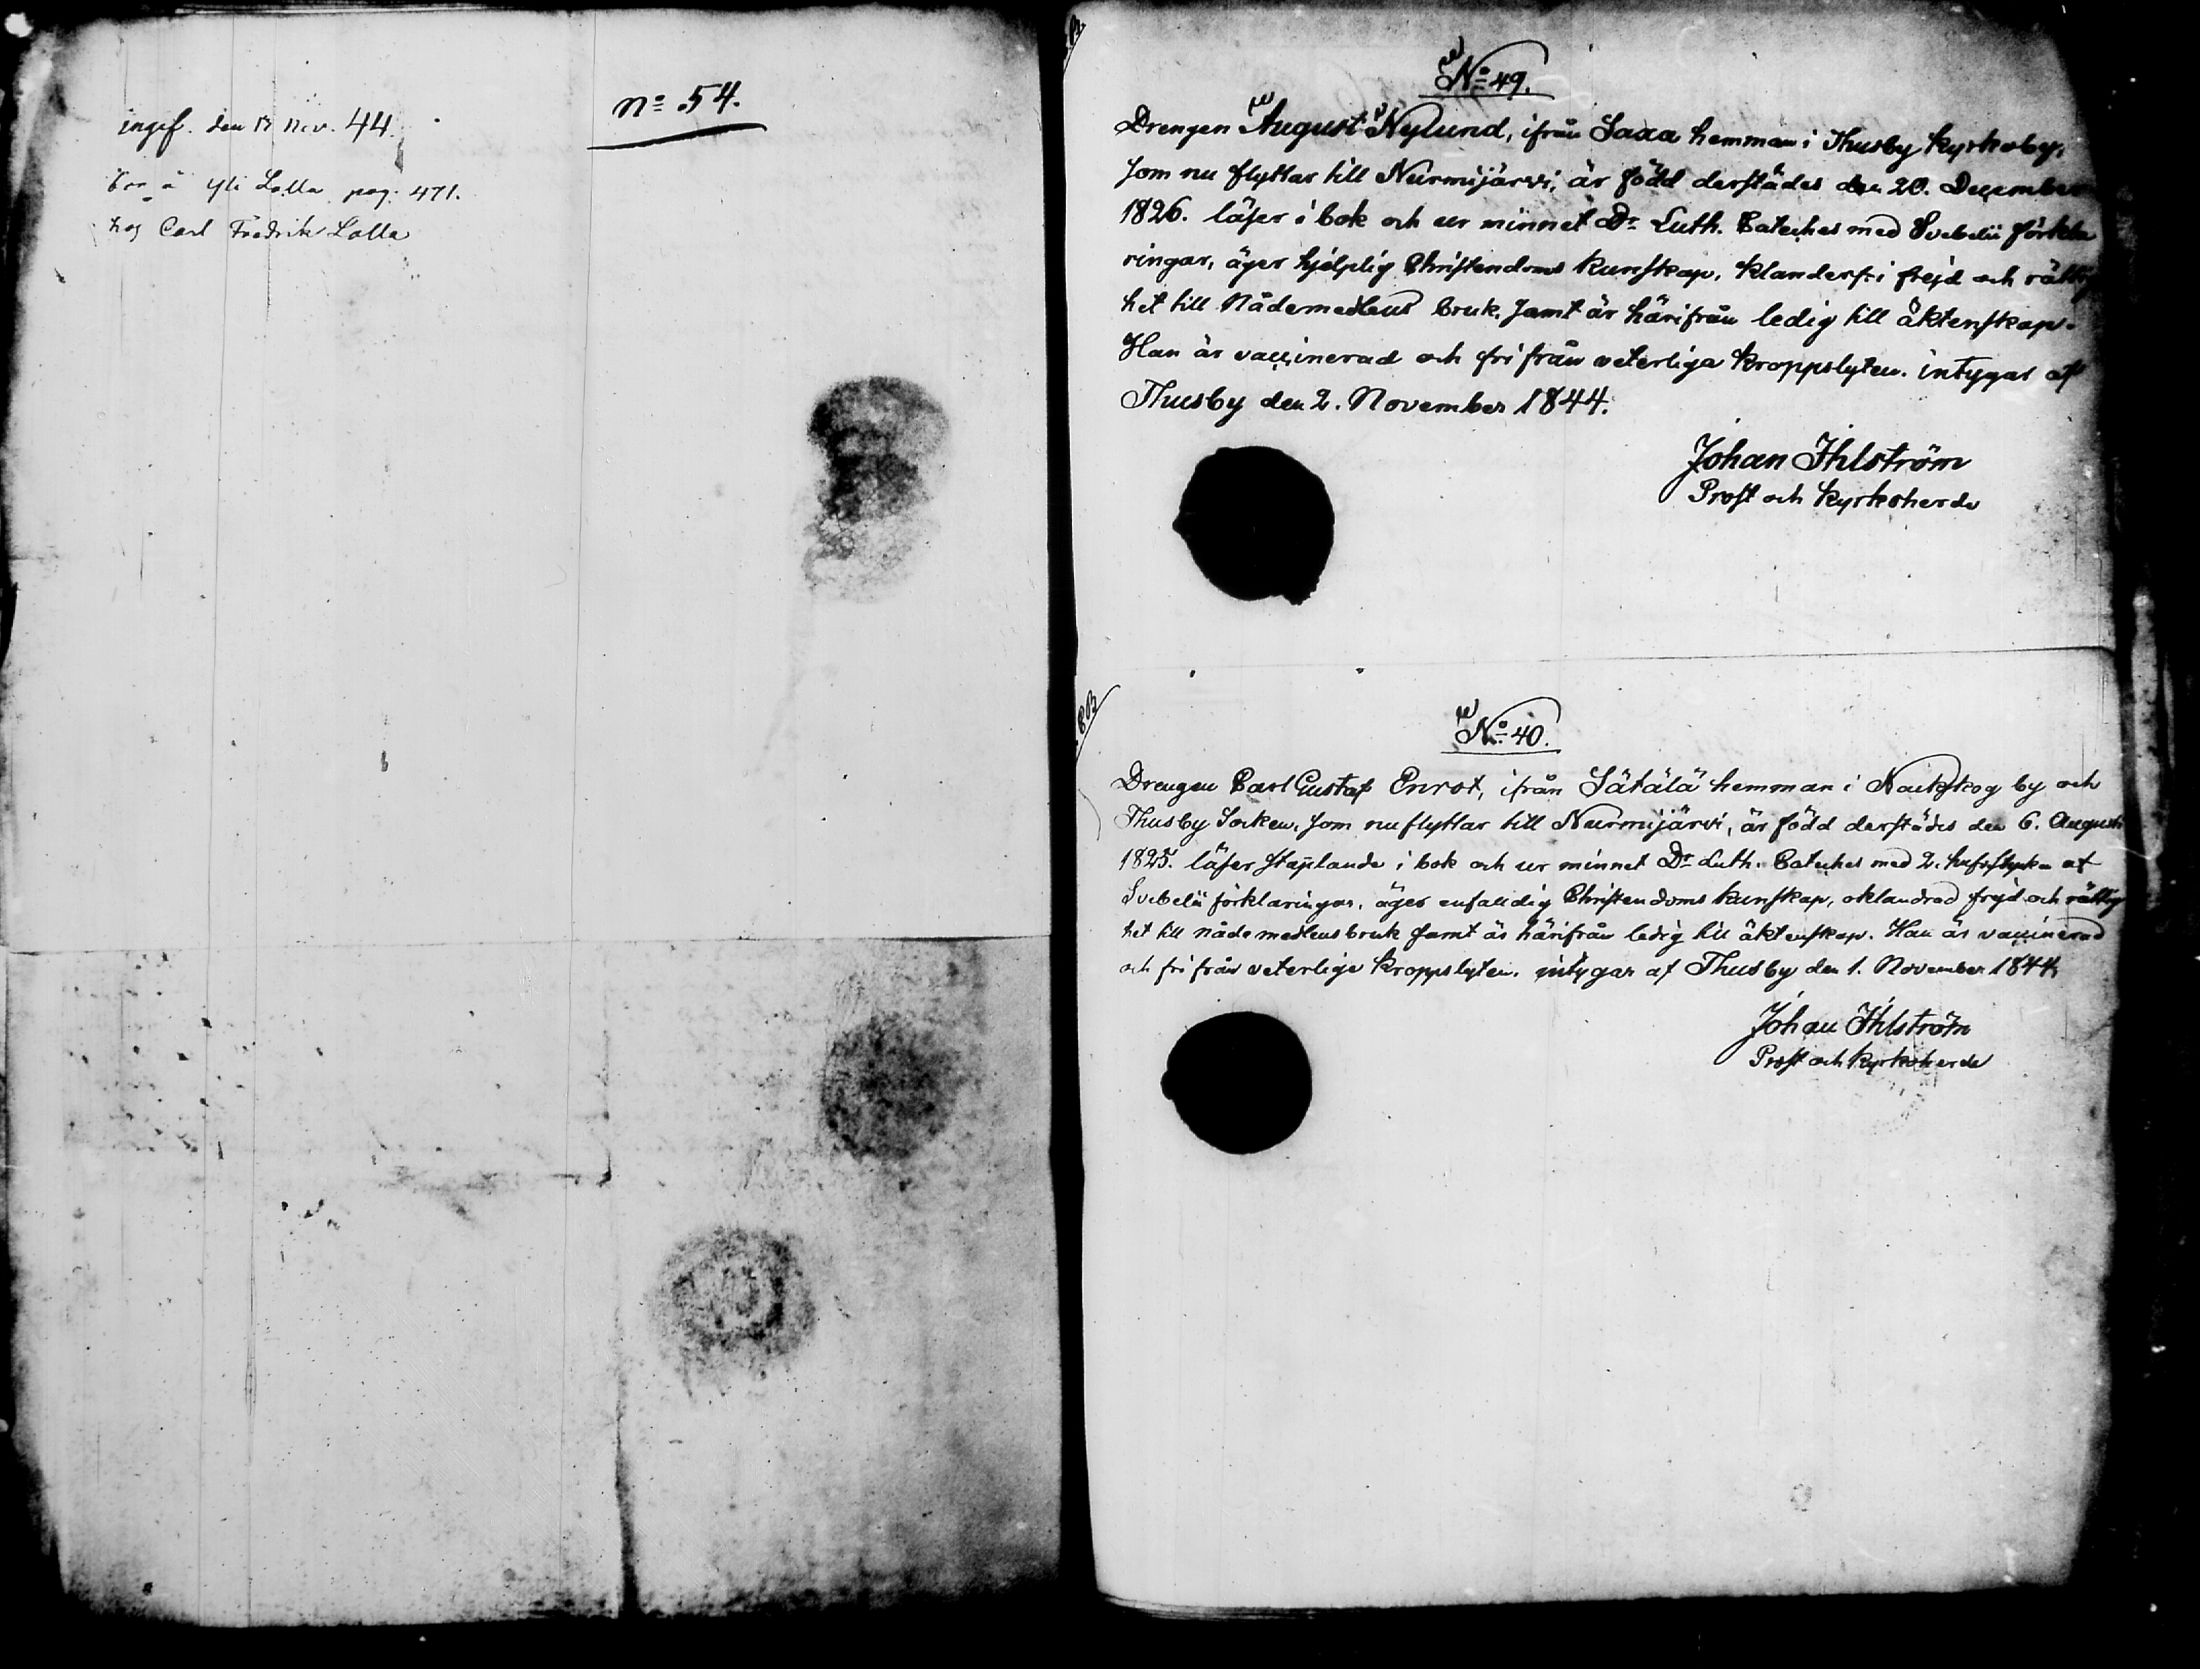 N:o 54.
ingif. den 17 Nov. 44.
Bor å Yli Lalla pag. 471.
hos Carl Fredrik Lalla
N:o 49.
Drengen August Nylund, ifrån Saxa hemman i Thusby Kyrkoby,
som nu flyttar till Nurmijärvi, är född derstädes den 20. December
1826. läser i bok och ur minnet Dr Luth. Cateches med Svebelii förkla
ringar, äger hjelplig Christendoms kunskap, klanderfri frejd och rättig
het till Nådemedlens bruk samt är härifrån ledig till äktenskap.
Han är vaccinerad och fri från veterliga kroppslyten. intygas af
Thusby den 2. November 1844.
Johan Ihlström
Prost och Kyrkoherde
N:o 40.
Drengen Carl Gustaf Enrot, ifrån Sätälä hemman i Nackskog by och
Thusby Socken, som nu flyttar till Nurmijärvi, är född derstädes den 6. Augusti
1825. läser staplande i bok och ur minnet Dr Luth. Cateches med 2. hufvstycken af
Svebelii förklaringar, äger enfaldig Christendoms kunskap, oklandrad frejd och rättig
het till nådemedlens bruk samt är härifrån ledig till äktenskap. Han är vaccinerad
och fri från veterlige kroppslyten. intygar af Thusby den 1. November 1844.
Johan Ihlström
Prost och Kyrkoherde